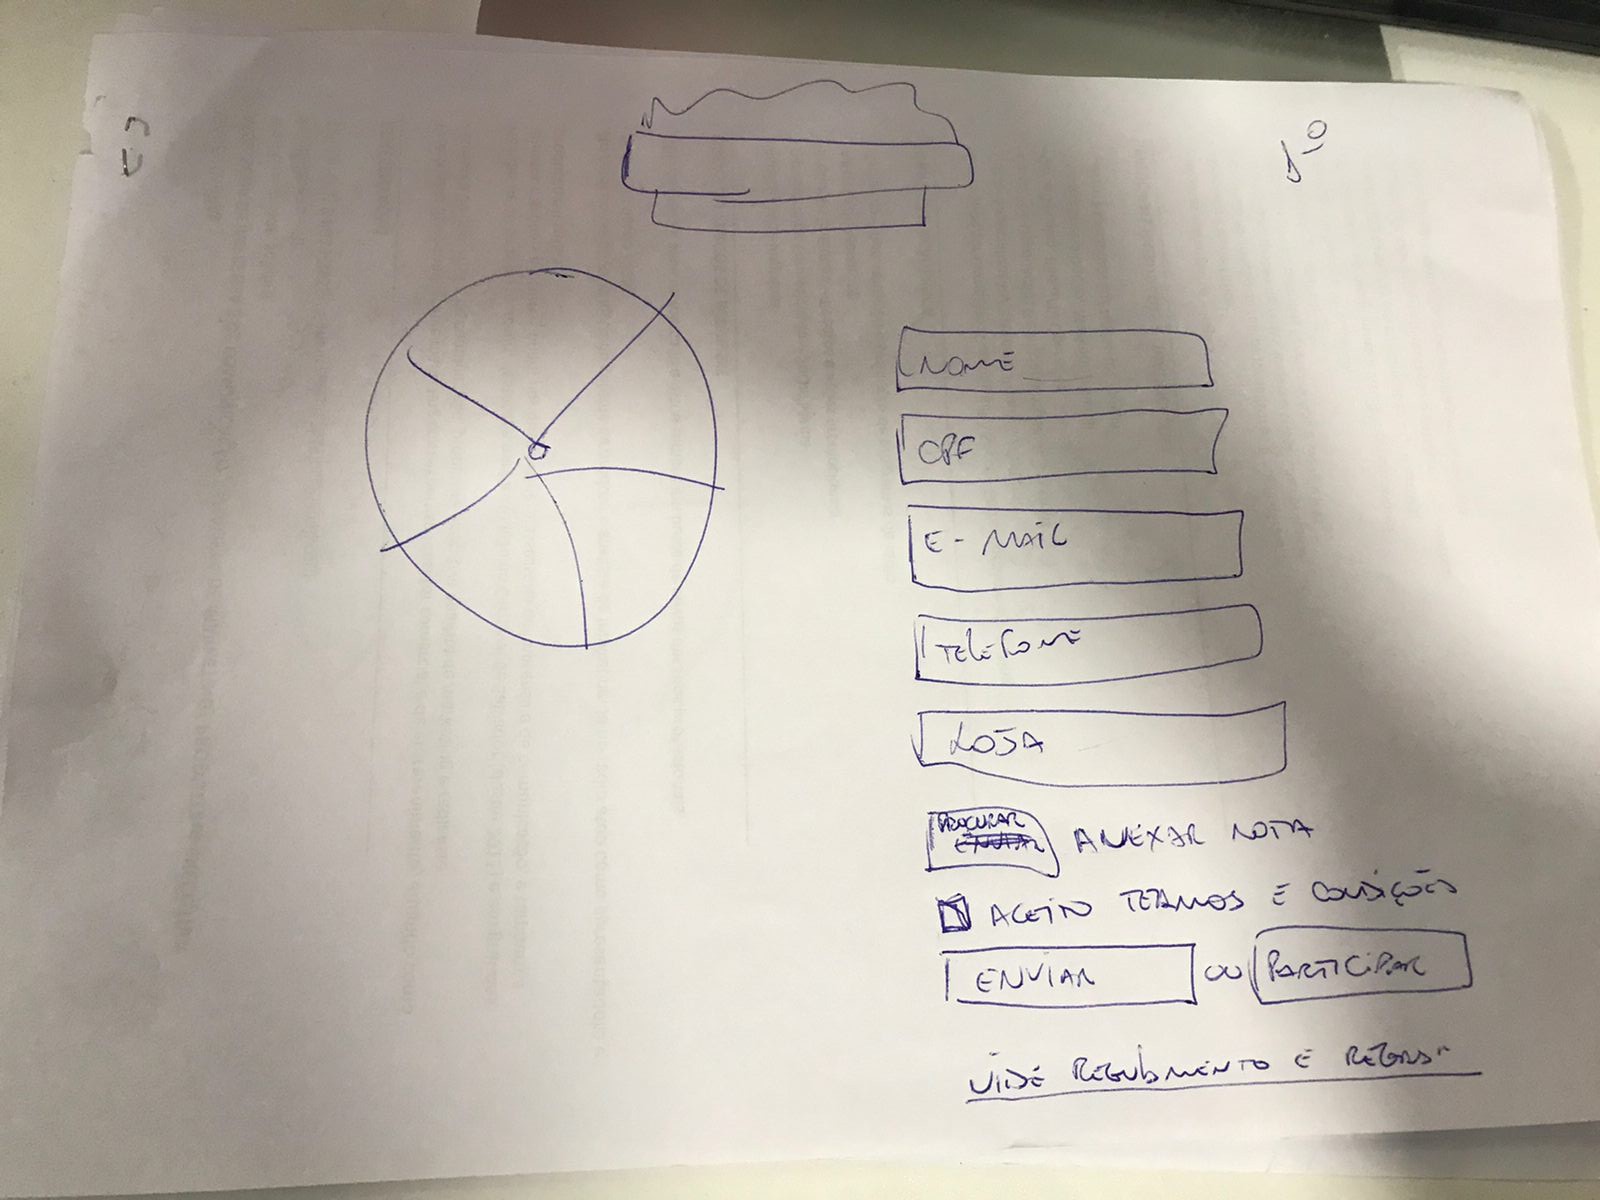 1º
NOME
CPF
E-MAIL
TELEFONE
LOJA
PROCURAR
ENVIAR
ANEXAR NOTA
ACEITO TERMOS E CONDIÇÕES
ENVIAR OU PARTICIPAR
VIDE REGULAMENTO E REGRAS